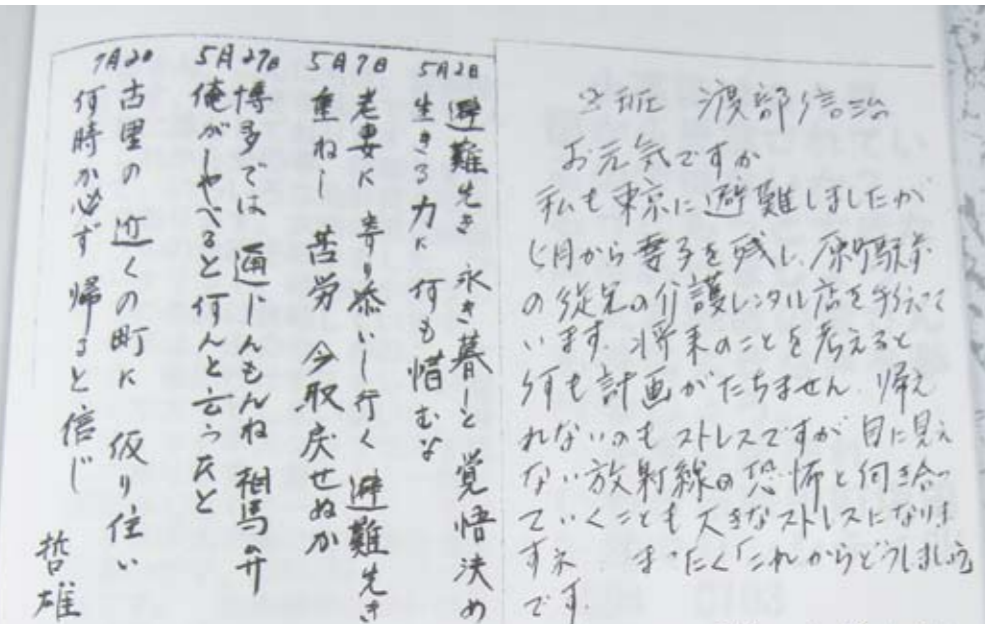 2班 渡部信治
お元気ですか
私も東京に避難しましたが
七月から妻子を残し、原町駅前
の従兄の介護レンタル店を手伝って
います。将来のことを考えると
何も計画がたちません。帰え
れないのもストレスですが目に見え
ない放射線の恐怖と向き合っ
ていくことも大きなストレスになりま
すネ。まったく「これからどうしましょう」
です。
5月2日
避難先き 永き暮しと 覚悟決め
生きる力に 何も惜むな
5月7日
老妻に 寄り添いし行く 避難先き
重ねし 苦労 今取戻せぬか
5月27日
博多では 通じんもんね 相馬の弁
俺がしゃべると何んと云う天と
7月2日
古里の 近くの町に 仮り住い
何時か必ず 帰ると信じ
哲雄